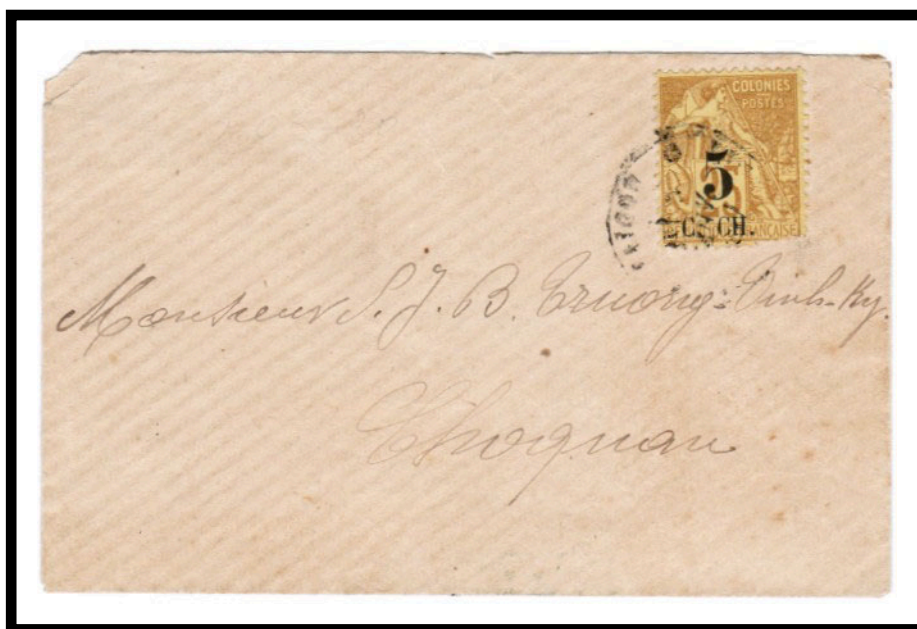 COLONIES
POSTES
5
C. CH.
SAIGON
Monsieur S. J. B. Truong-Vinh-Ky.
Choquan